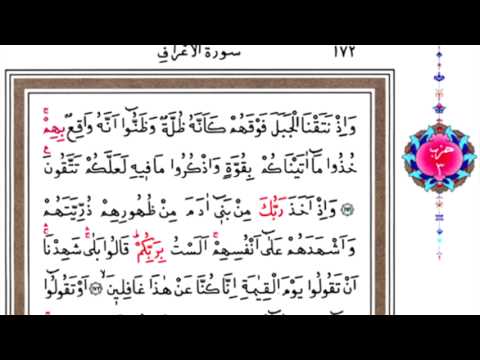 ١٧٢ سورة الأعراف
وَإِذْ نَتَقْنَا الْجَبَلَ فَوْقَهُمْ كَأَنَّهُ ظُلَّةٌ وَظَنُّوا أَنَّهُ وَاقِعٌ بِهِمْ
خُذُوا مَا اٰتَيْنَاكُمْ بِقُوَّةٍ وَاذْكُرُوا مَا فِيهِ لَعَلَّكُمْ تَتَّقُونَ
﴿١٧١﴾ وَإِذْ أَخَذَ رَبُّكَ مِنْ بَنِى اٰدَمَ مِنْ ظُهُورِهِمْ ذُرِّيَّتَهُمْ
وَأَشْهَدَهُمْ عَلٰى أَنْفُسِهِمْ أَلَسْتُ بِرَبِّكُمْ قَالُوا بَلٰى شَهِدْنَا
أَنْ تَقُولُوا يَوْمَ الْقِيٰمَةِ إِنَّا كُنَّا عَنْ هٰذَا غَافِلِينَ ﴿١٧٢﴾ أَوْ تَقُولُوا
حزب
٣